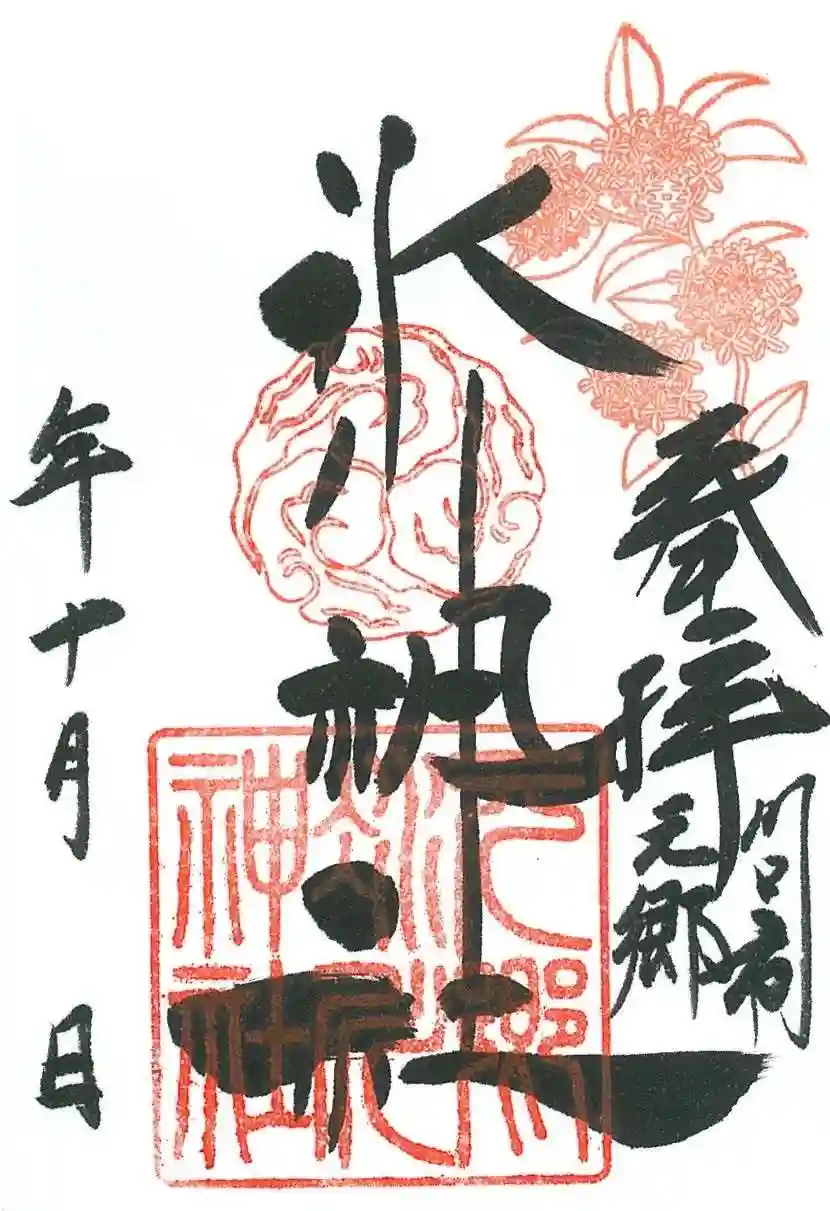 奉拝
川口市
元郷
氷川神社
元郷氷川神社
年十月 日